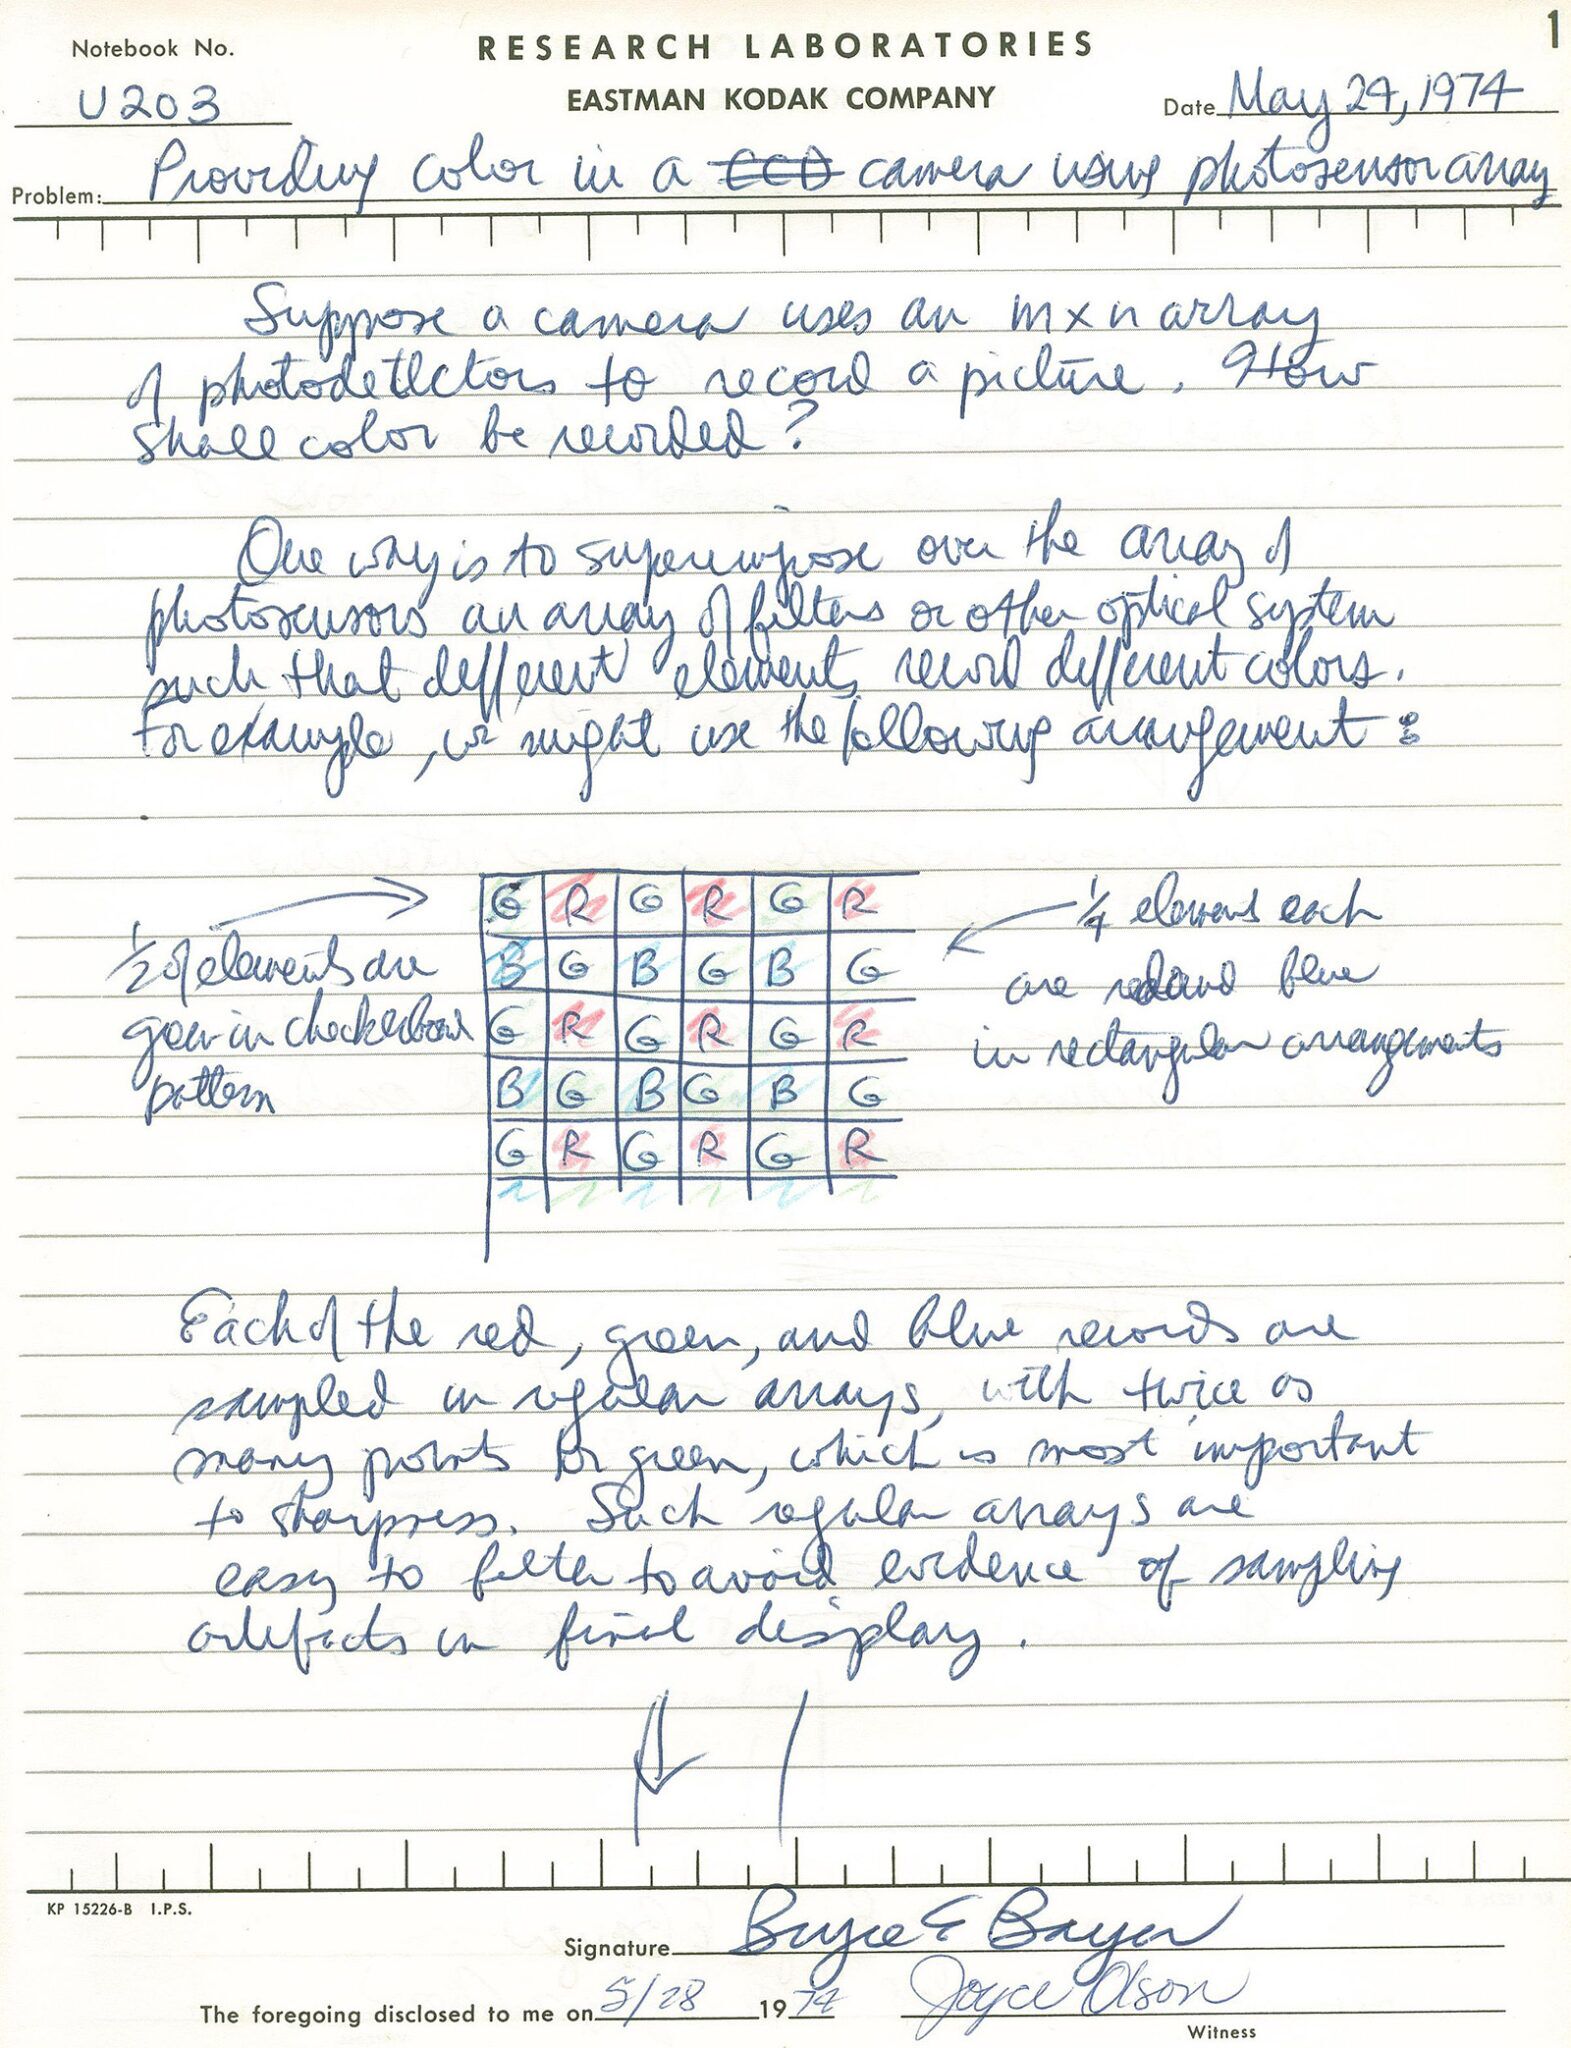 1
Notebook No. RESEARCH LABORATORIES
U203 EASTMAN KODAK COMPANY Date May 24, 1974
Problem: Providing color in a CCD camera using photosensor array
Suppose a camera uses an m x n array
of photodetectors to record a picture. How
shall color be recorded?
One way is to superimpose over the array of
photosensors an array of filters or other optical system
such that different elements record different colors.
For example, we might use the following arrangement:
1/2 of elements are
green in checkerboard
pattern
G R G R G R
B G B G B G
G R G R G R
B G B G B G
G R G R G R
1/4 elements each
are red and blue
in rectangular arrangements
Each of the red, green, and blue records are
sampled in regular arrays, with twice as
many points for green, which is most important
to sharpness. Such regular arrays are
easy to filter to avoid evidence of sampling
artefacts in final display.
KP 15226-B I.P.S.
Signature Bryce E Bayer
The foregoing disclosed to me on 5/28 1974 Joyce Olson
Witness